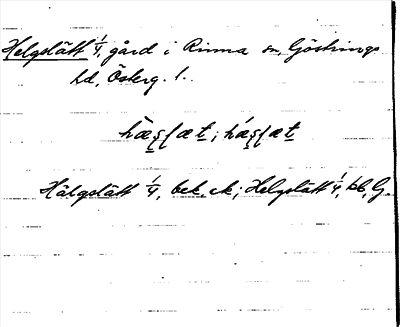 Helgslätt 1/4, gård i Rinna sn, Göstrings
hd, Österg. l.
hæşʃæt; háşʃæt
Hälgslätt 1/4, bek. ck; Helgslätt 1/4, kb, G.